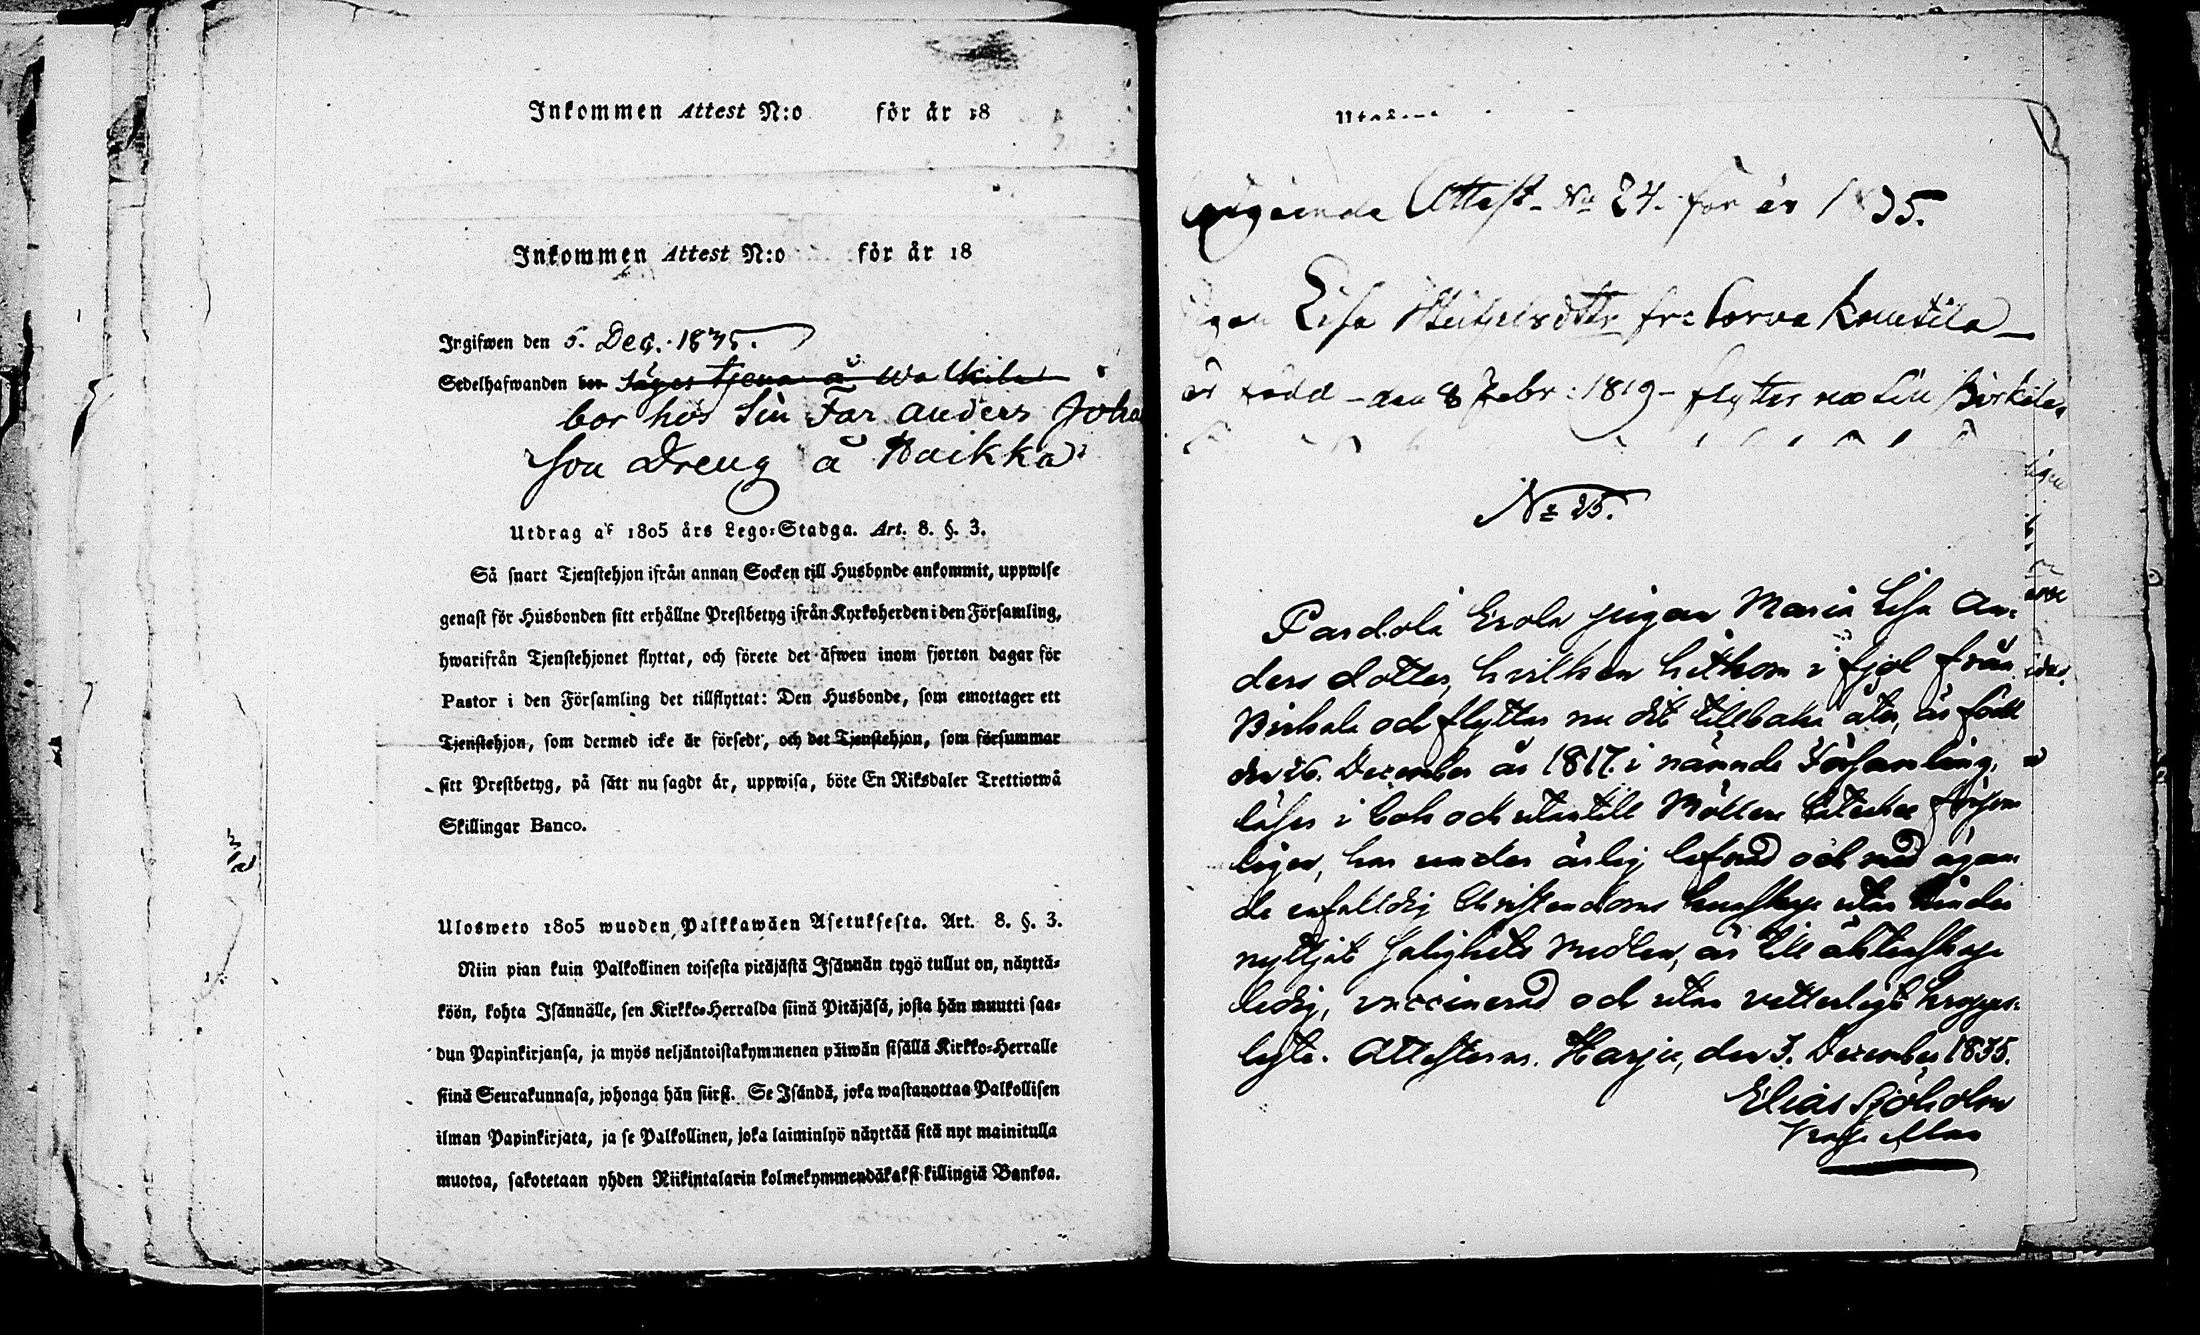 Inkommen Attest N:o för år 18
Inkommen Attest N:o för år 18
Ingifwen den 5. Dec. 1835.
Sedelhafwanden bor säges tjena å Walkila
bor hos Sin Far Anders Joha
son Dreng å Naikka
Utdrag af 1805 års Lego-Stadga. Art. 8. §. 3.
Så snart Tjenstehjon ifrån annan Socken till Husbonde ankommit, uppwise
genast för Husbonden sitt erhållne Prestbetyg ifrån Kyrkoherden i den Församling,
hwarifrån Tjenstehjonet flyttat, och förete det äfwen inom fjorton dagar för
Pastor i den Församling det tillflyttat: Den Husbonde, som emottager ett
Tjenstehjon, som dermed icke är försedt, och det Tjenstehjon, som försummar
sitt Prestbetyg, på sätt nu sagdt är, uppwisa, böte En Riksdaler Trettiotwå
Skillingar Banco.
Ulosweto 1805 wuoden Palkkawäen Asetuksesta. Art. 8. §. 3.
Niin pian kuin Palkollinen toisesta pitäjästä Isännän tygö tullut on, näyttä-
köön, kohta Isännälle, sen Kirkko-Herralda siinä Pitäjäsä, josta hän muutti saa-
dun Papinkirjansa, ja myös neljäntoistakymmenen päiwän sisällä Kirkko-Herralle
siinä Seurakunnasa, johonga hän siirsi. Se Isändä, joka wastanottaa Palkollisen
ilman Papinkirjata, ja se Palkollinen, joka laiminlyö näyttää sitä nyt mainitulla
muotoa, sakotetaan yhden Riikintalarin kolmekymmendäkaksi killingiä Bankoa.
Attest No 24. för år 1835.
Lisa Michelsdotter fr: Sorva Knutila
är född den 8 Febr: 1819 flyttar nu till Birkala
No 25.
Pardola Erola pigan Maria Lisa An-
ders dotter, hvilken hitkom i fjol från
Birkala och flyttar nu dit tillbaka åter, är född
den 26. December år 1817. i nämnde Församling,
läser i bok och utantill Möllers Cateches försvar
ligen, har under ärlig lefnad och med ägan
de enfalldig Christendoms kunskap utan hinder
nyttjat Salighets medlen, är till äktenskap
ledig, vaccinerad och utan vetterligt kropps-
lyte. Attesteras. Harju, den 3. December 1835.
Elias Sjöholm